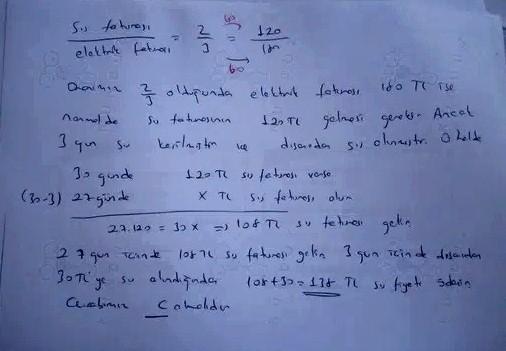 Su faturası / elektrik faturası = 2/3 = 120/180
60
60
Oranımız 2/3 olduğunda elektrik faturası 180 TL ise
normalde su faturasının 120 TL gelmesi gerekir. Ancak
3 gün su kesilmiştir ve dışarıdan su alınmıştır. O halde
30 günde 120 TL su faturası varsa
(30-3) 27 günde x TL su faturası olur
27.120 = 30x => 108 TL su faturası gelir
27 gün içinde 108 TL su faturası gelir 3 gün içinde dışarıdan
30 TL'ye su alındığında 108+30 = 138 TL su fiyatı öderiz
Cevabımız C olmalıdır